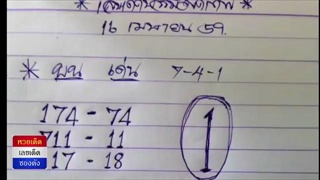 16 เมษายน 59.
* บน เด่น 7-4-1
174 - 74
711 - 11
17 - 18
1
หวยเด็ด
เลขเด็ด
ซองดัง